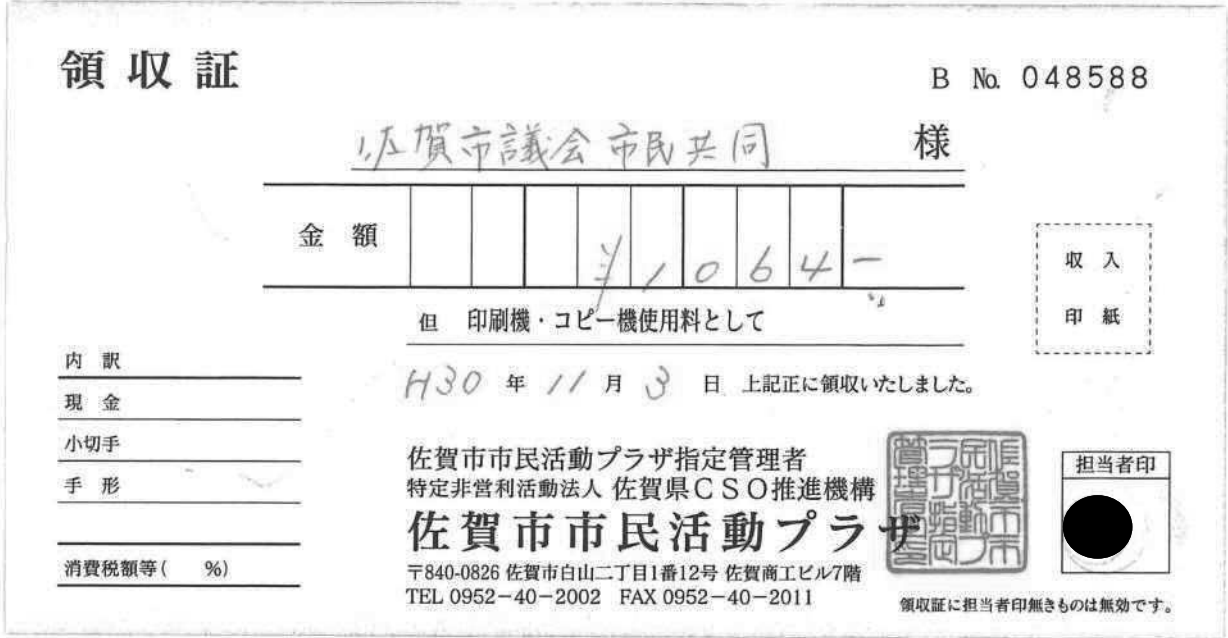 領収証
B No. 048588
佐賀市議会市民共同 様
金額 ¥1064-
但 印刷機・コピー機使用料として
収入
印紙
H30年11月3日 上記正に領収いたしました。
内訳
現金
小切手
手形
消費税額等( %)
佐賀市市民活動プラザ指定管理者
特定非営利活動法人 佐賀県CSO推進機構
佐賀市市民活動プラザ
〒840-0826 佐賀市白山二丁目1番12号 佐賀商工ビル7階
TEL 0952-40-2002 FAX 0952-40-2011
担当者印
領収証に担当者印無きものは無効です。